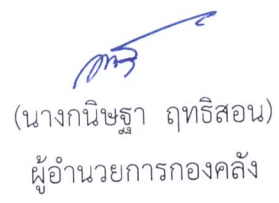 (นางกนิษฐา ฤทธิสอน)
ผู้อำนวยการกองคลัง